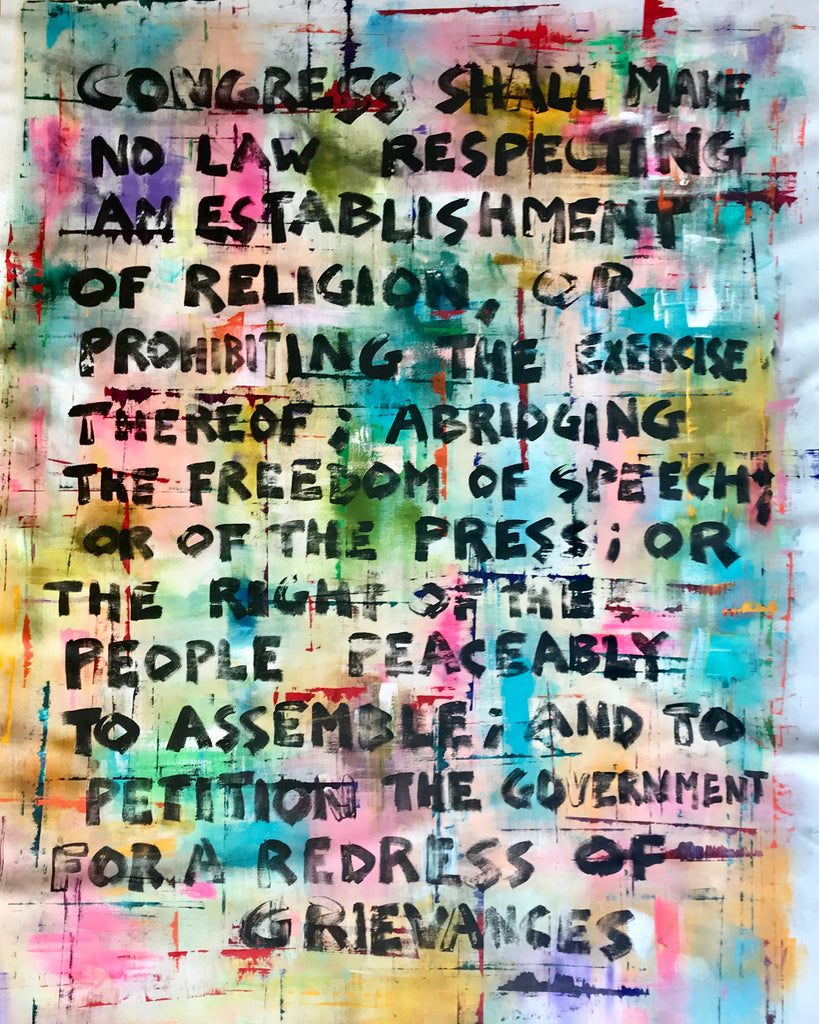 CONGRESS SHALL MAKE
NO LAW RESPECTING
AN ESTABLISHMENT
OF RELIGION, OR
PROHIBITING THE EXERCISE
THEREOF; ABRIDGING
THE FREEDOM OF SPEECH;
OR OF THE PRESS; OR
THE RIGHT OF THE
PEOPLE PEACEABLY
TO ASSEMBLE; AND TO
PETITION THE GOVERNMENT
FOR A REDRESS OF
GRIEVANCES